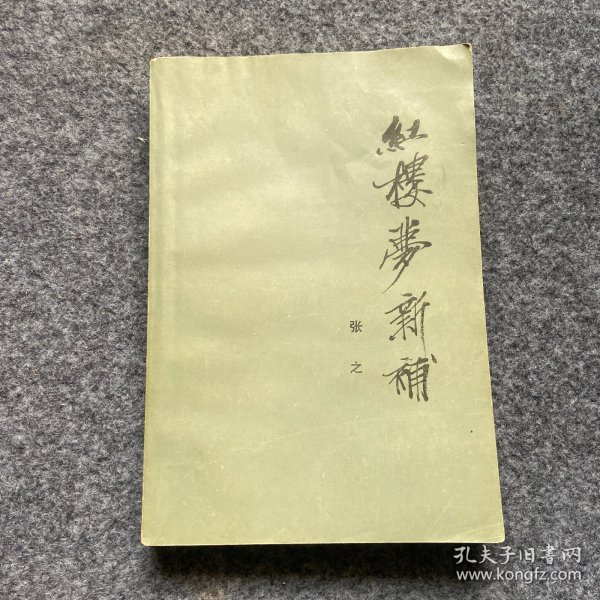 紅樓夢新補
张之
孔夫子旧書网
www.kongfz.com